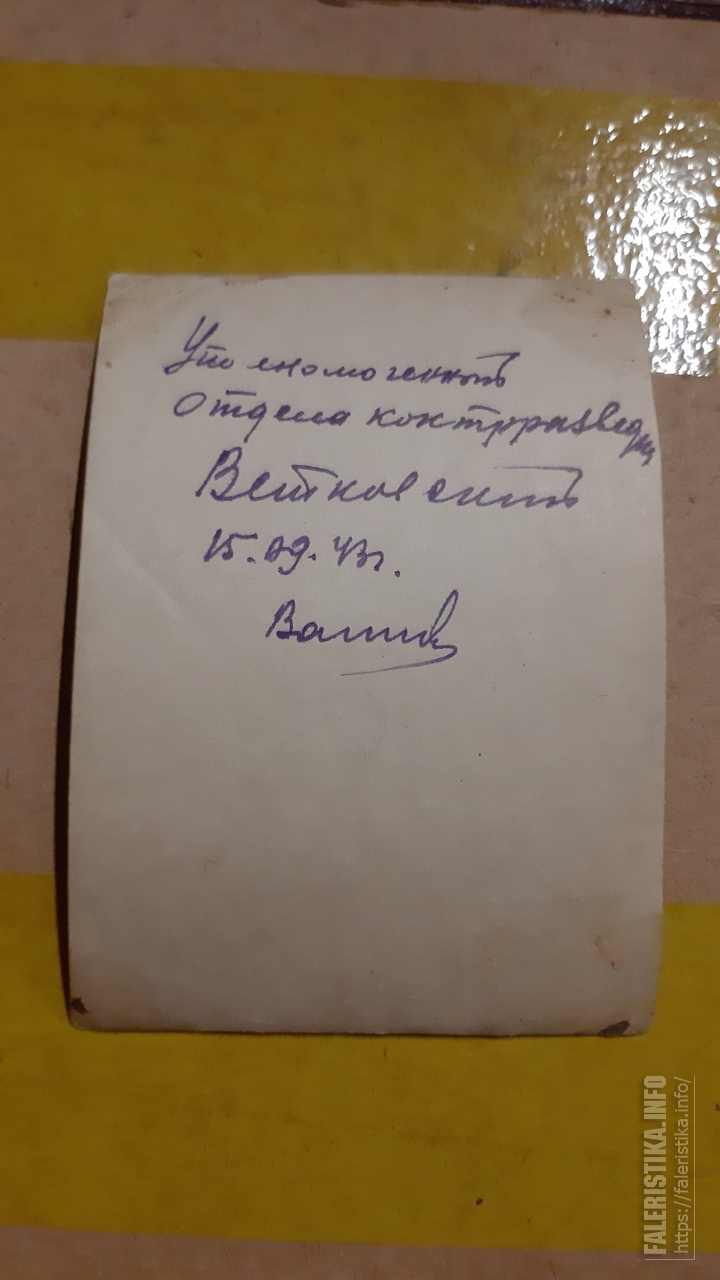 Уполномоченный
отдела контрразведки
Ветковский
15.09.43г.
FALERISTIKA.INFO
https://faleristika.info/